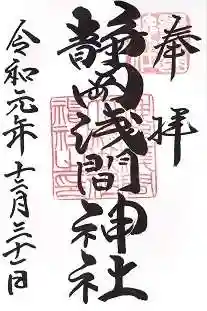 奉拝
静岡浅間神社
令和元年十二月三十一日